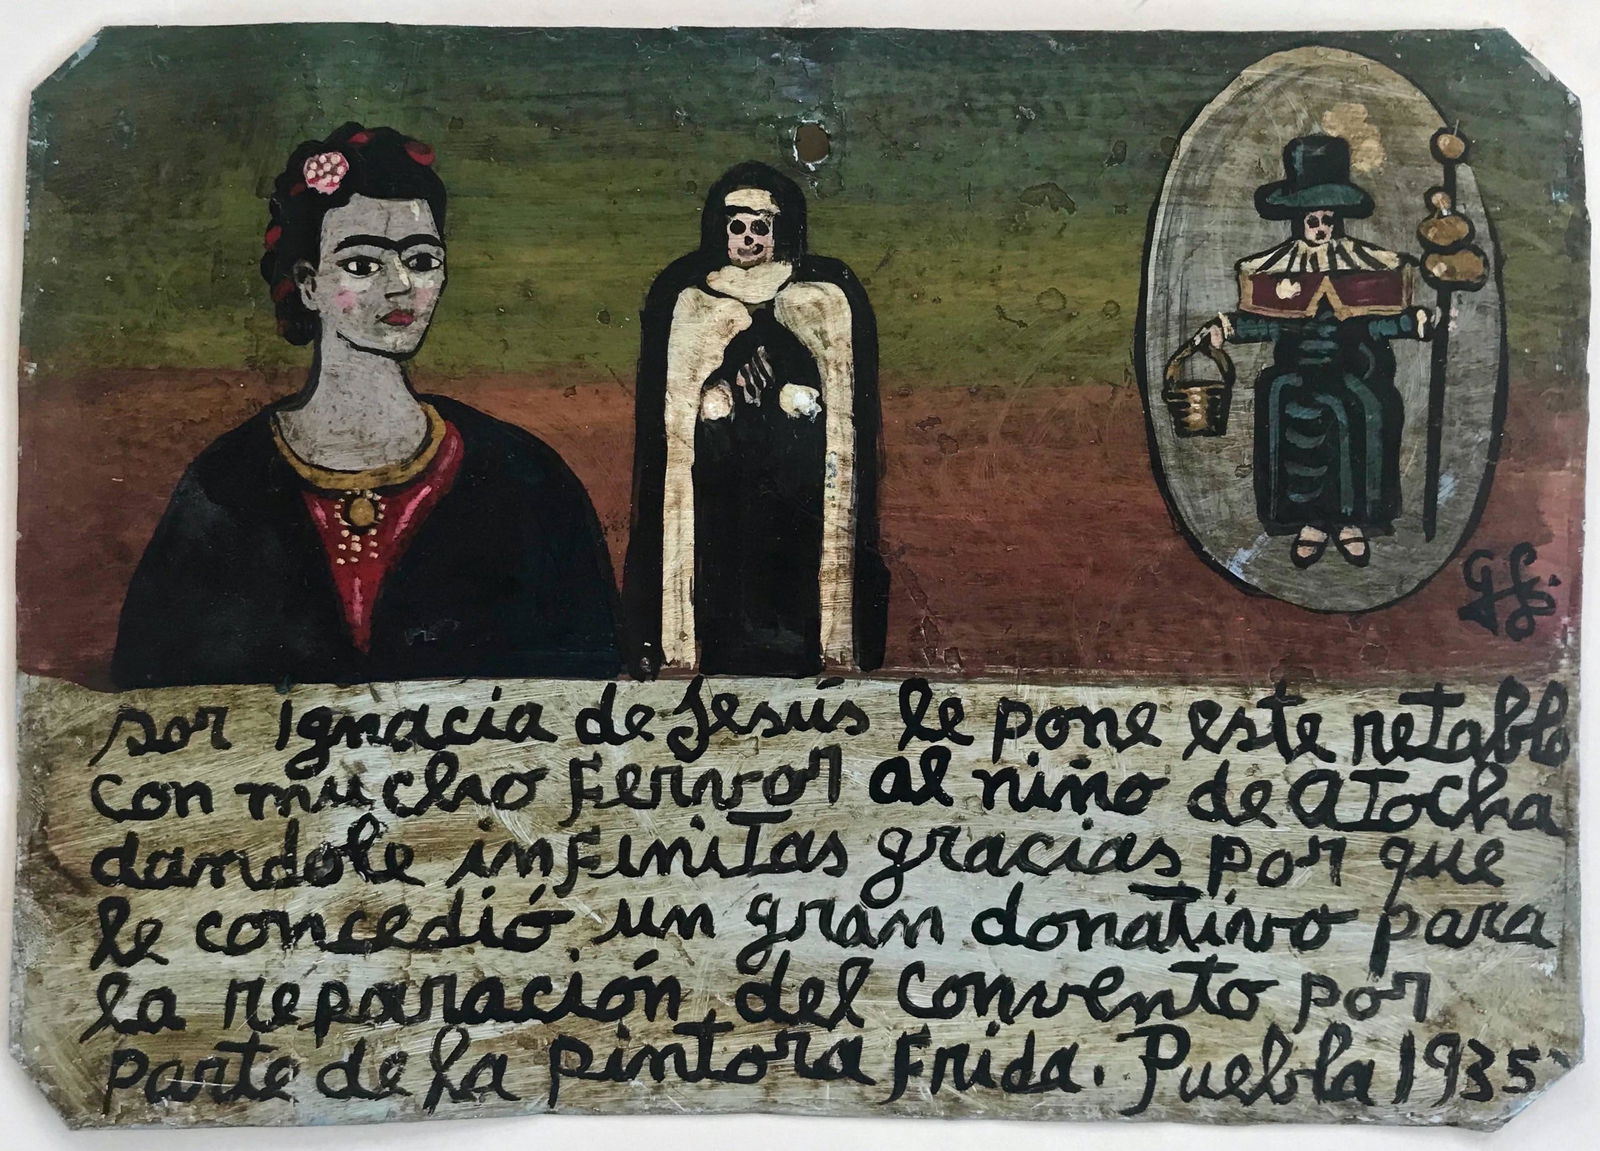 sor Ignacia de Jesús le pone este retablo
con mucho Fervor al niño de atocha
dandole infinitas gracias por que
le concedió un gran donativo para
la reparación del convento por
parte de la pintora Frida. Puebla 1935